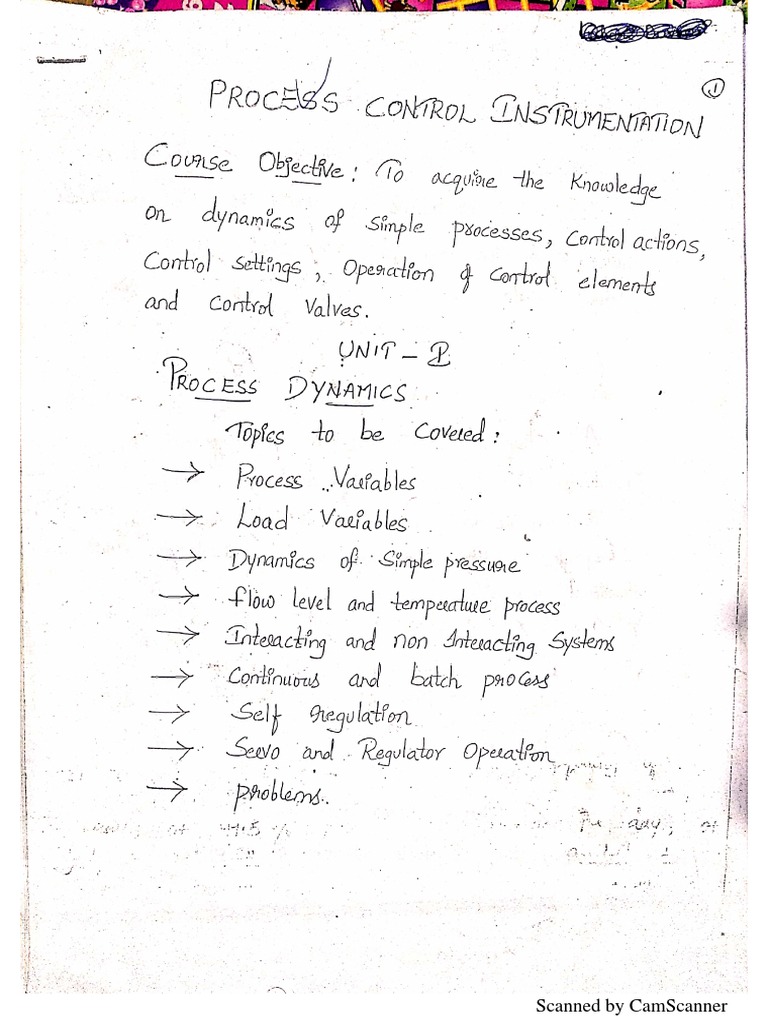 1
PROCESS CONTROL INSTRUMENTATION
Course Objective: To acquire the Knowledge
on dynamics of simple processes, Control actions,
Control settings, Operation of Control elements
and Control Valves.
UNIT - I
PROCESS DYNAMICS
Topics to be Covered:
→ Process Variables
→ Load Variables
→ Dynamics of Simple pressure
→ flow level and temperature process
→ Interacting and non Interacting Systems
→ Continuous and batch process
→ Self regulation
→ Servo and Regulator Operation
→ problems.
Scanned by CamScanner